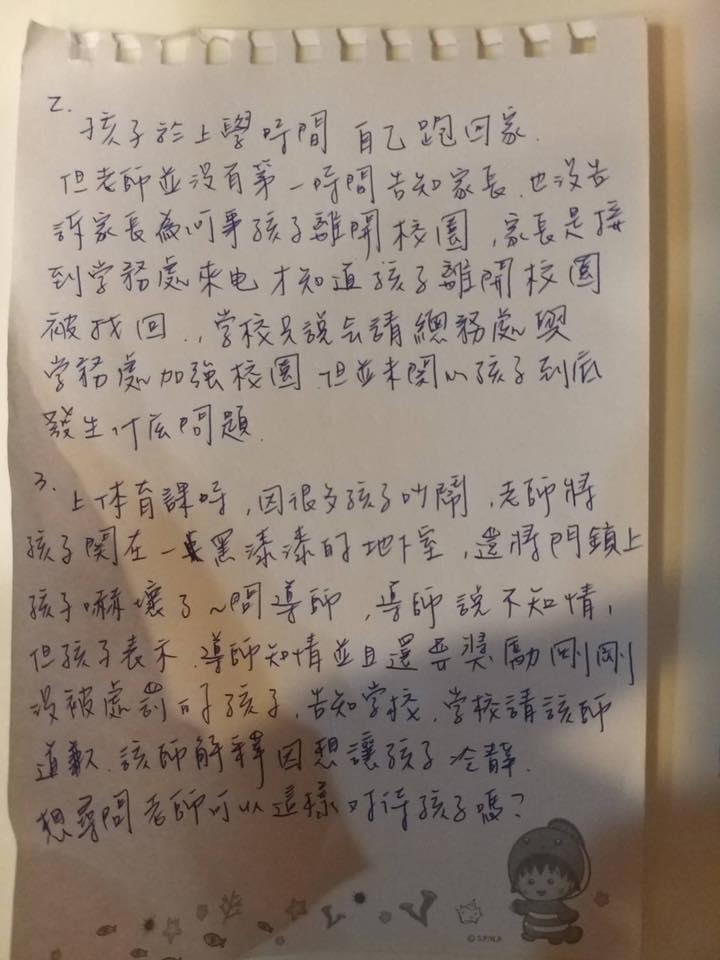 2.
孩子於上學時間 自己跑回家.
但老師並沒有第一時間告知家長.也沒告
訴家長為何事孩子離開校園,家長是接
到学務處來电才知道孩子離開校園
被找回.,学校只說会請總務處與
学務處加強校園.但並未関心孩子到底
發生什広問題.
3.
上体育課時,因很多孩子吵鬧,老師將
孩子関在一黑漆漆的地下室,還將門鎖上
孩子嚇壞了~問導師,導師說不知情,
但孩子表示.導師知情並且還要獎勵剛剛
沒被處罰的孩子.告知学校.学校請該師
道歉.該師解釋因想讓孩子冷靜.
想尋問老師可以這樣对待孩子嗎?
© S.P/N.A